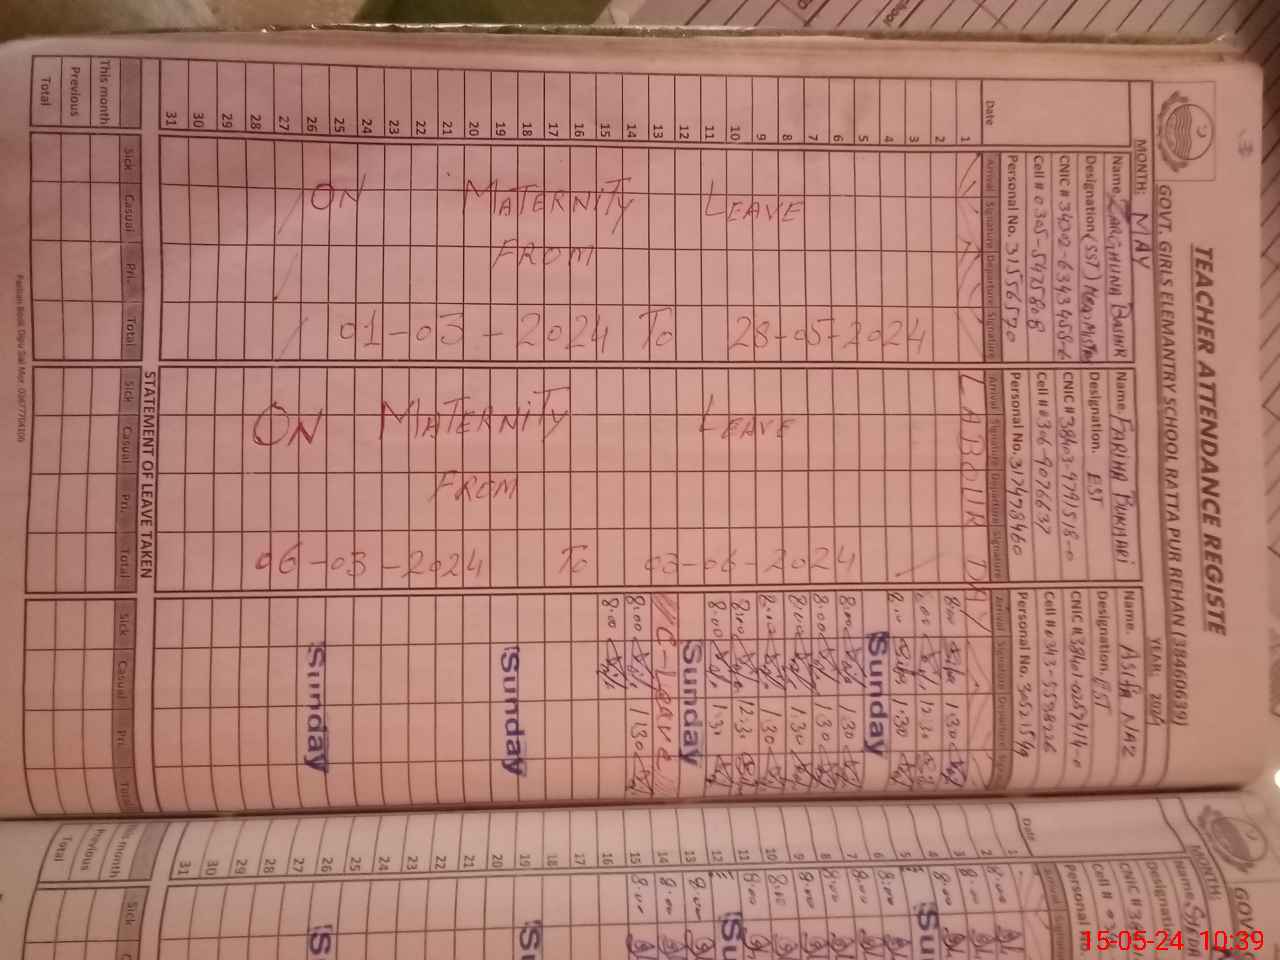 TEACHER ATTENDANCE REGISTE
GOVT. GIRLS ELEMANTRY SCHOOL RATTA PUR REHAN (38460639)
MONTH: MAY YEAR. 2024
Name. ZARGHUNA BASHIR
Designation (SST) Head Mistress
CNIC #
Cell # 0305-5475808
Personal No. 31556570
Date Arrival Signature Departure Signature
Name. FARIHA BUKHARI
Designation. EST
CNIC # 38403-9791518-0
Cell # 0306-9076637
Personal No. 317478460
Arrival Signature Departure Signature
Name. ASIFA NAZ
Designation. PST
CNIC # 38401-0257414-0
Cell # 0343-5598226
Personal No.
Arrival Signature Departure Signa
1 LABOUR DAY
2 8:00 1:30
3 8:00 12:30
4 8:00 1:30
5 Sunday
6 8:00 1:30
7 8:00 1:30
8 8:00 1:30
9 8:00 1:30
10 8:00 12:30
11 8:00 1:30
12 Sunday
13 C-Leave
14 8:00 1:30
15 8:00
16
17
18
19 Sunday
20
21
22
23
24
25
26 Sunday
27
28
29
30
31
ON MATERNITY LEAVE
FROM
01-03-2024 To 28-05-2024
ON MATERNITY LEAVE
FROM
06-03-2024 To 03-06-2024
STATEMENT OF LEAVE TAKEN
Sick Casual Pri. Total Sick Casual Pri. Total Sick Casual Pri. Total
This month
Previous
Total
GOV
MONTH:
Name.
Designat
CNIC #
Cell #
Personal No.
Date
1 8:00
2 8:00
3 8:00
4
5 Su
6 8:00
7 8:00
8 8:00
9 8:00
10 8:00
11 8:00
12 Su
13 8:00
14 8:00
15 8:00
16
17
18
19 S
20
21
22
23
24
25
26 S
27
28
29
30
31
This month
Previous
Total
Sick
15-05-24 10:39